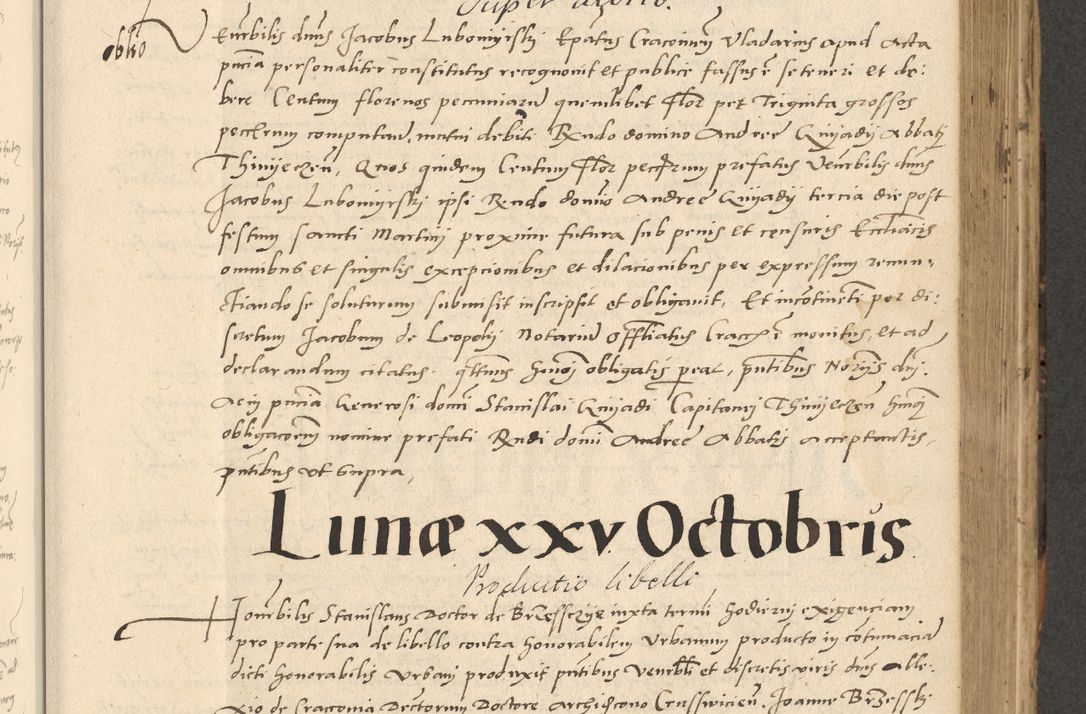 oblio
Venerbilis dnus Jacobus Lubomyrsky Epatus Cracovien Vladarius apud Acta
pncia personaliter constitutus recognovit et publice fassus e se teneri et de:
bere Centum florenos pecuniarum quemlibet Flor per Triginta grossos
pecrum computand, mutui debiti Rndo domino Andree Gnyady Abbati
Thinyeczen, Quos quidem Centum Flor pecrum prefatus Venerbilis dnus
Jacobus Lubomyrsky ipsi Rndo domino Andree Gnyady tercia die post
festum sancti Martini proxime futura sub penis et censuris Eccliacis
omnibus et singulis excepcionibus et dilacionibus per expressum renun,
ctiando se soluturum submisit inscripsit et obligavit, Et incontinenti per di:
scretum Jacobum de Leopoly Notarium Officiatus Cracc e monitus, et ad
declarandum citatus. obligatis pntibus
pncia Generosi domi Stanislai Gnyadi Capitanei Thinyeczen hmoi
obligacoem nomine prefati Rndi domi Andree Abbatis acceptantis,
pntibus ut supra,
Lunæ xxv Octobris
Productio libelli
Honorbilis Stanislaus Doctor de Brzessczye iuxta termi hodierni exigenciam
pro parte sua de libello contra honorabilem Urbanum producto in cotumacia
dicti honorabilis Urbani produxit pntibus Venerbli et discretis viris dnis Alle:
xio de Cracovia Decretorum Doctore Archidiacono Crusswicien, Joanne Brzessky